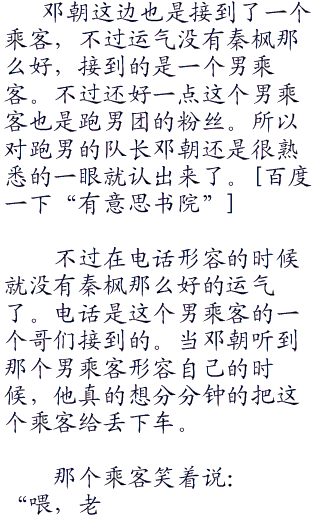 邓朝这边也是接到了一个
乘客，不过运气没有秦枫那
么好，接到的是一个男乘
客。不过还好一点这个男乘
客也是跑男团的粉丝。所以
对跑男的队长邓朝还是很熟
悉的一眼就认出来了。[百度
一下“有意思书院”]
不过在电话形容的时候
就没有秦枫那么好的运气
了。电话是这个男乘客的一
个哥们接到的。当邓朝听到
那个男乘客形容自己的时
候，他真的想分分钟的把这
个乘客给丢下车。
那个乘客笑着说：
“喂，老